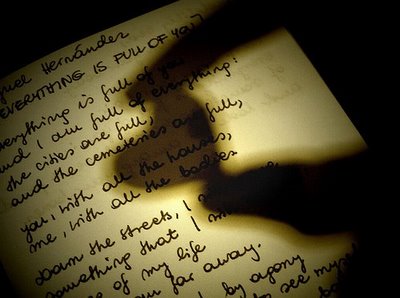 guel Hernández
EVERYTHING IS FULL OF YOU
verything is full of you
and I am full of everything:
the cities are full,
and the cemeteries are full,
you, with all the houses,
me, with all the bodies
Down the streets, I
something that I
of my life
far away.
by agony
see mysel